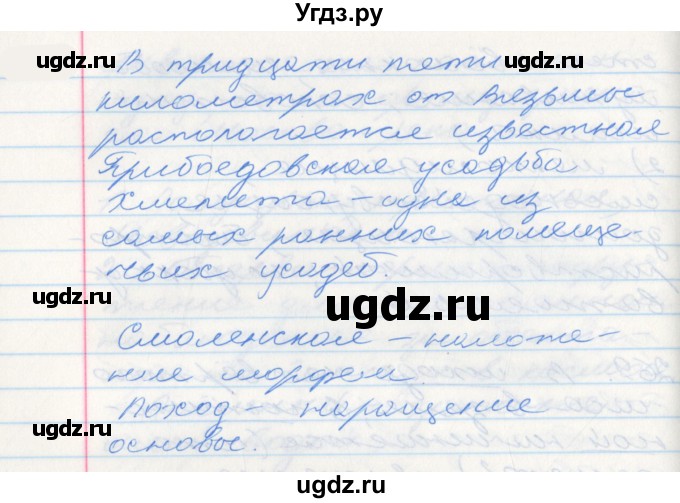 Угдз.ру
ugdz.ru ugdz.ru
В тридцати пяти
километрах от Вязьмы
располагается известная
Грибоедовская усадьба
Хмелита – одна из
самых ранних помещи-
чьих усадеб.
ugdz.ru
Смоленская – наложе-
ние морфем.
Поход – наращение
основы.
ugdz.ru ugdz.ru